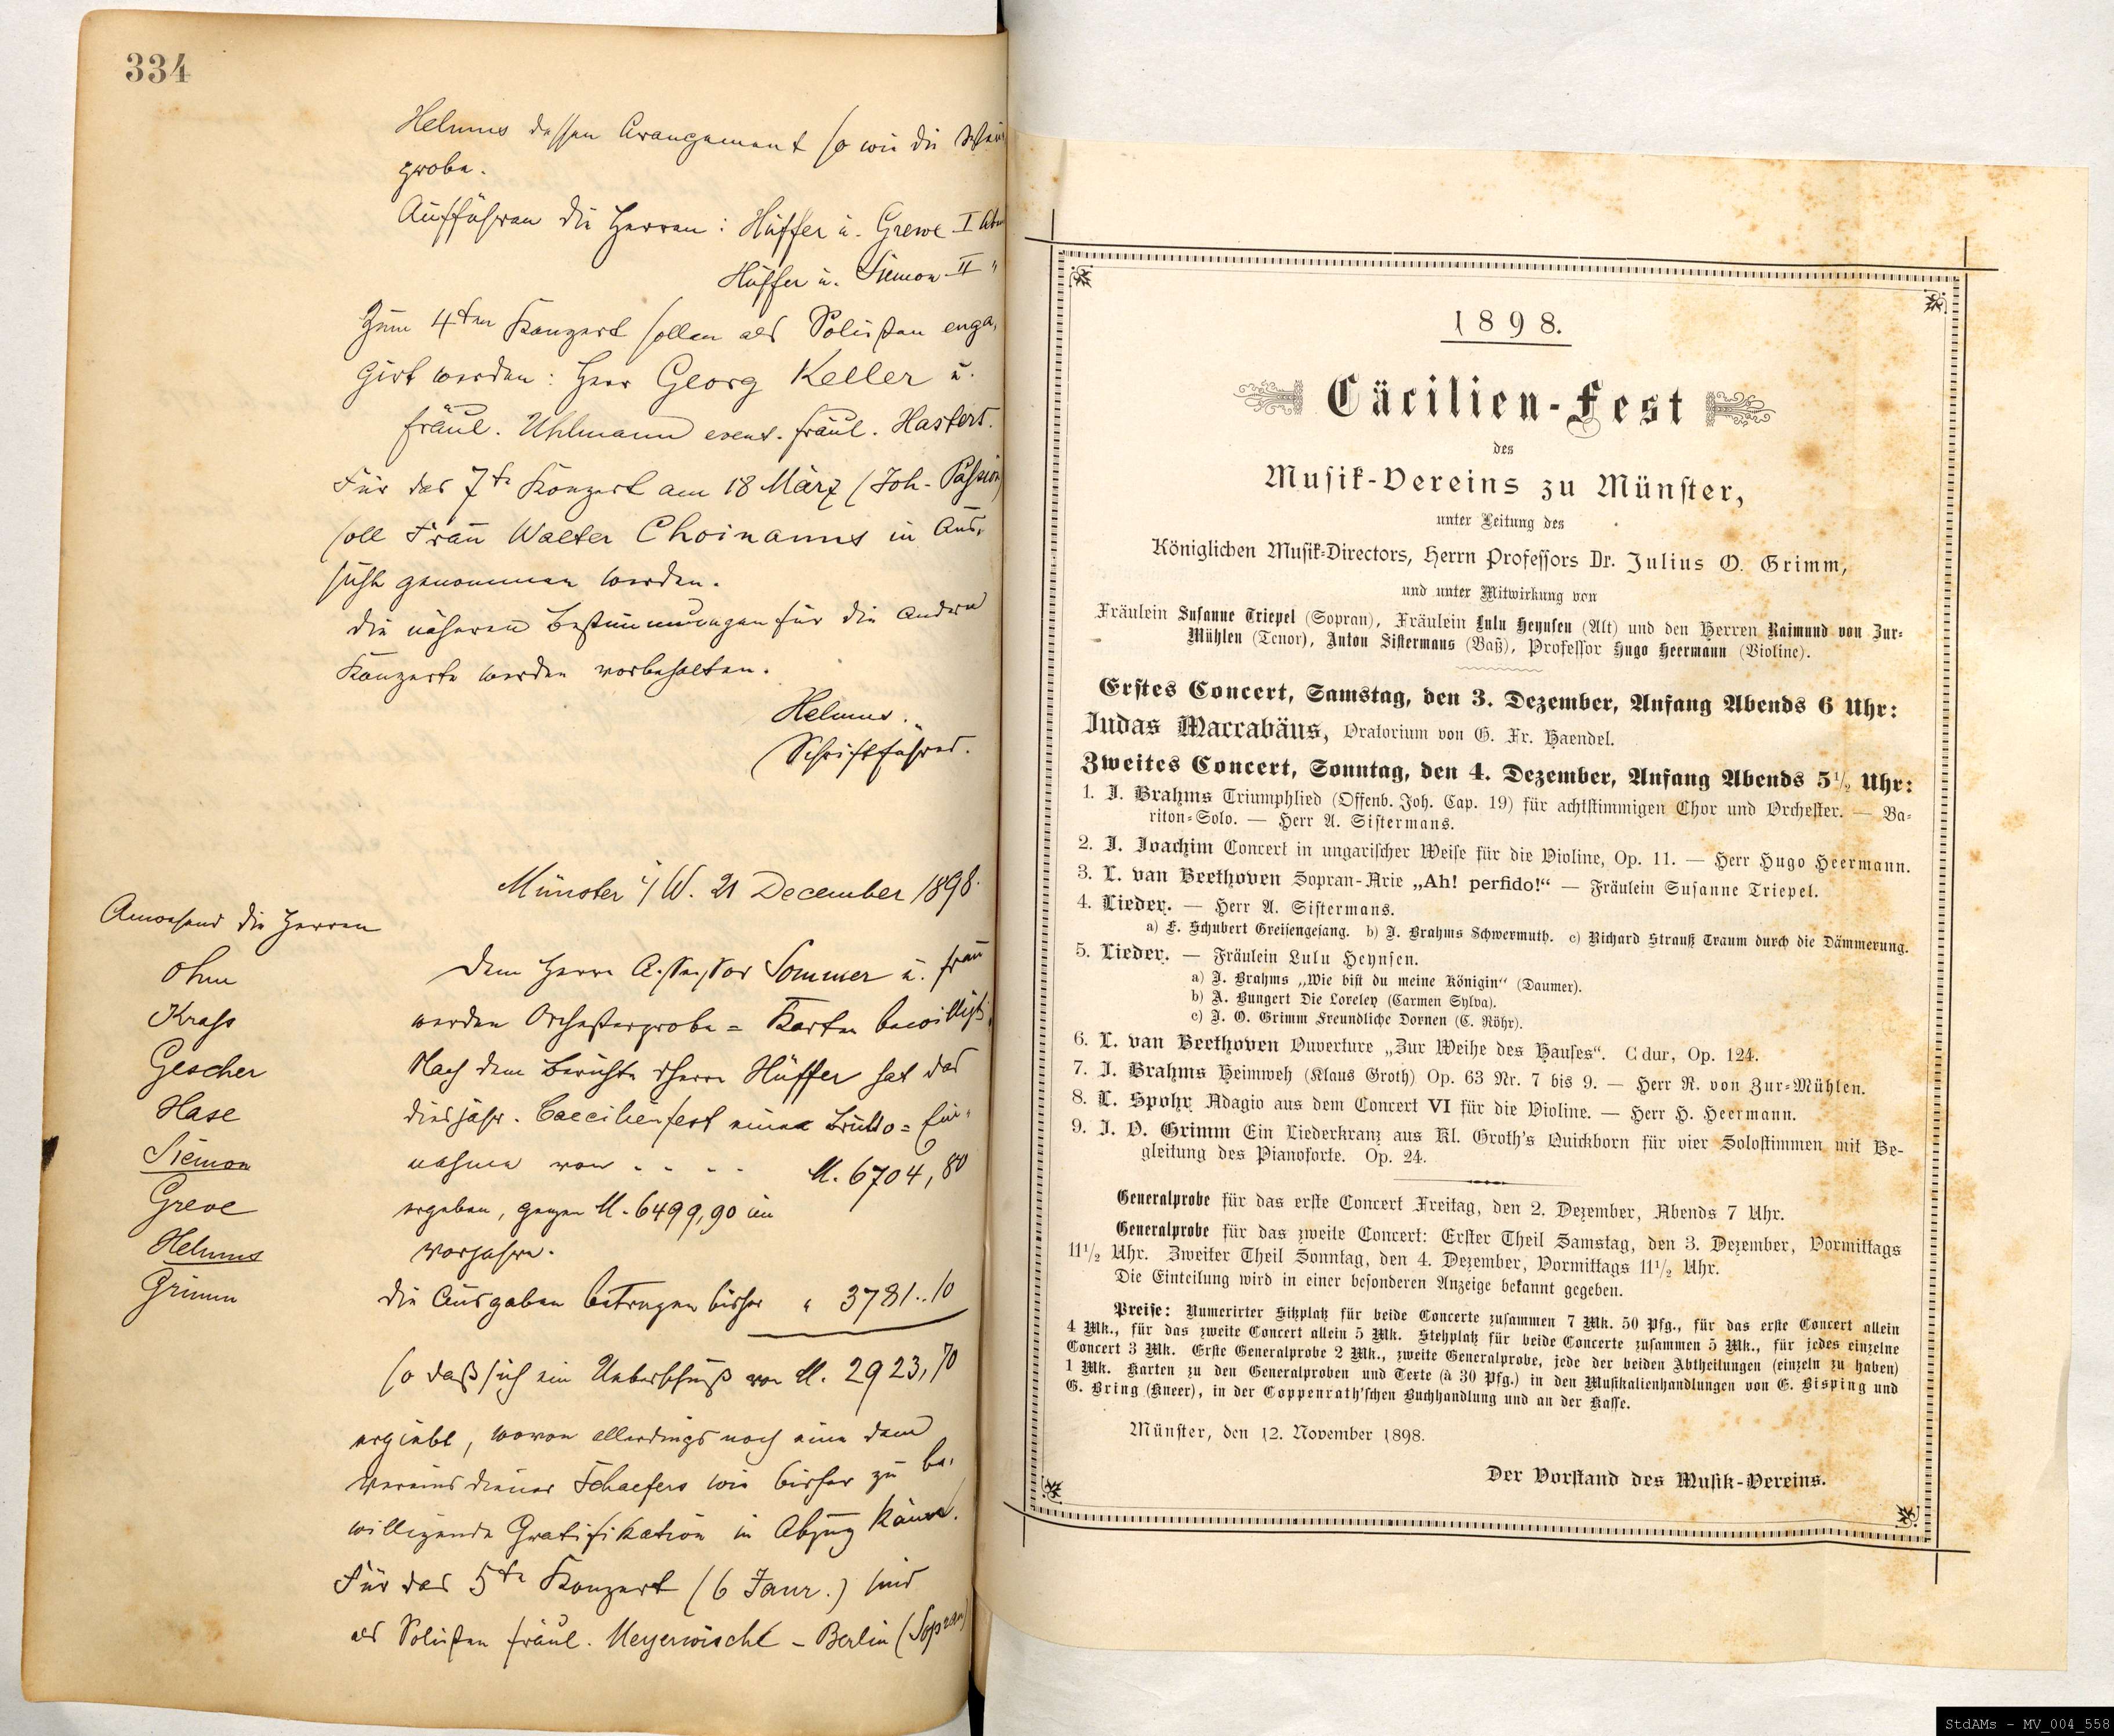 334
Helmus dessen Arrangement so wie die
probe.
Aufführen die Herren: Hüffer u. Grewe I
Hüffer u. Siemon II "
Zum 4ten Konzert sollen als Solisten enga-
girt werden: Herr Georg Keller u.
Fräul. Uhlmann event. Fräul. Hastert.
Für das 7te Konzert am 18 März (Joh. Passion)
soll Frau Walter Choinanus in Aus-
sicht genommen werden.
Die näheren Bestimmungen für die andern
Konzerte werden vorbehalten.
Helmus.
Schriftführer.
Münster i/W. 21 December 1898.
Anwesend die Herren
Ohm
Krass
Gescher
Hase
Siemon
Greve
Helmus
Grimm
Dem Herrn Assessor Sommer u. Frau
werden Orchesterprobe = Karten bewilligt.
Nach dem Berichte Herrn Hüffer hat das
diesjähr. Caecilienfest eine Brutto = Ein-
nahme von . . . . M. 6704,80
ergeben, gegen M. 6499,90 im
Vorjahre.
Die Ausgaben betragen bisher " 3781..10
so daß sich ein Ueberschuß von M. 2923,70
ergiebt, wovon allerdings noch eine dem
Vereinsdiener Schaefers wie bisher zu be-
willigende Gratifikation in Abzug käme.
Für das 5te Konzert (6 Janr.) sind
als Solisten Fräul. Meyerwischt - Berlin (Sopran)
1898.
Cäcilien-Fest
des
Musik-Vereins zu Münster,
unter Leitung des
Königlichen Musik-Directors, Herrn Professors Dr. Julius O. Grimm,
und unter Mitwirkung von
Fräulein Susanne Triepel (Sopran), Fräulein Lulu Heynsen (Alt) und den Herren Raimund von Zur-
Mühlen (Tenor), Anton Sistermans (Baß), Professor Hugo Heermann (Violine).
Erstes Concert, Samstag, den 3. Dezember, Anfang Abends 6 Uhr:
Judas Maccabäus, Oratorium von G. Fr. Haendel.
Zweites Concert, Sonntag, den 4. Dezember, Anfang Abends 5½ Uhr:
1. J. Brahms Triumphlied (Offenb. Joh. Cap. 19) für achtstimmigen Chor und Orchester. — Ba-
riton-Solo. — Herr A. Sistermans.
2. J. Joachim Concert in ungarischer Weise für die Violine, Op. 11. — Herr Hugo Heermann.
3. L. van Beethoven Sopran-Arie „Ah! perfido!“ — Fräulein Susanne Triepel.
4. Lieder. — Herr A. Sistermans.
a) F. Schubert Greisengesang. b) J. Brahms Schwermuth. c) Richard Strauß Traum durch die Dämmerung.
5. Lieder. — Fräulein Lulu Heynsen.
a) J. Brahms „Wie bist du meine Königin“ (Daumer).
b) A. Bungert Die Loreley (Carmen Sylva).
c) J. O. Grimm Freundliche Dornen (C. Röhr).
6. L. van Beethoven Ouverture „Zur Weihe des Hauses“. C dur, Op. 124.
7. J. Brahms Heimweh (Klaus Groth) Op. 63 Nr. 7 bis 9. — Herr R. von Zur-Mühlen.
8. L. Spohr Adagio aus dem Concert VI für die Violine. — Herr H. Heermann.
9. J. O. Grimm Ein Liederkranz aus Kl. Groth's Quickborn für vier Solostimmen mit Be-
gleitung des Pianoforte. Op. 24.
Generalprobe für das erste Concert Freitag, den 2. Dezember, Abends 7 Uhr.
Generalprobe für das zweite Concert: Erster Theil Samstag, den 3. Dezember, Vormittags
11½ Uhr. Zweiter Theil Sonntag, den 4. Dezember, Vormittags 11½ Uhr.
Die Einteilung wird in einer besonderen Anzeige bekannt gegeben.
Preise: Numerirter Sitzplatz für beide Concerte zusammen 7 Mk. 50 Pfg., für das erste Concert allein
4 Mk., für das zweite Concert allein 5 Mk. Stehplatz für beide Concerte zusammen 5 Mk., für jedes einzelne
Concert 3 Mk. Erste Generalprobe 2 Mk., zweite Generalprobe, jede der beiden Abtheilungen (einzeln zu haben)
1 Mk. Karten zu den Generalproben und Texte (à 30 Pfg.) in den Musikalienhandlungen von E. Bisping und
G. Bring (Kneer), in der Coppenrath'schen Buchhandlung und an der Kasse.
Münster, den 12. November 1898.
Der Vorstand des Musik-Vereins.
StdAMs - MV_004_558